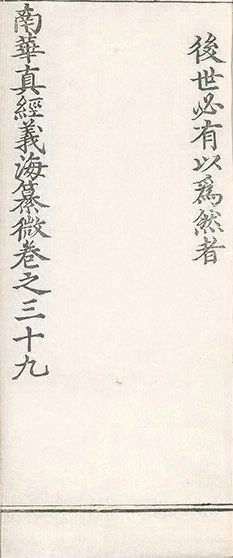 後世必有以爲然者
南華真經義海纂微卷之三十九